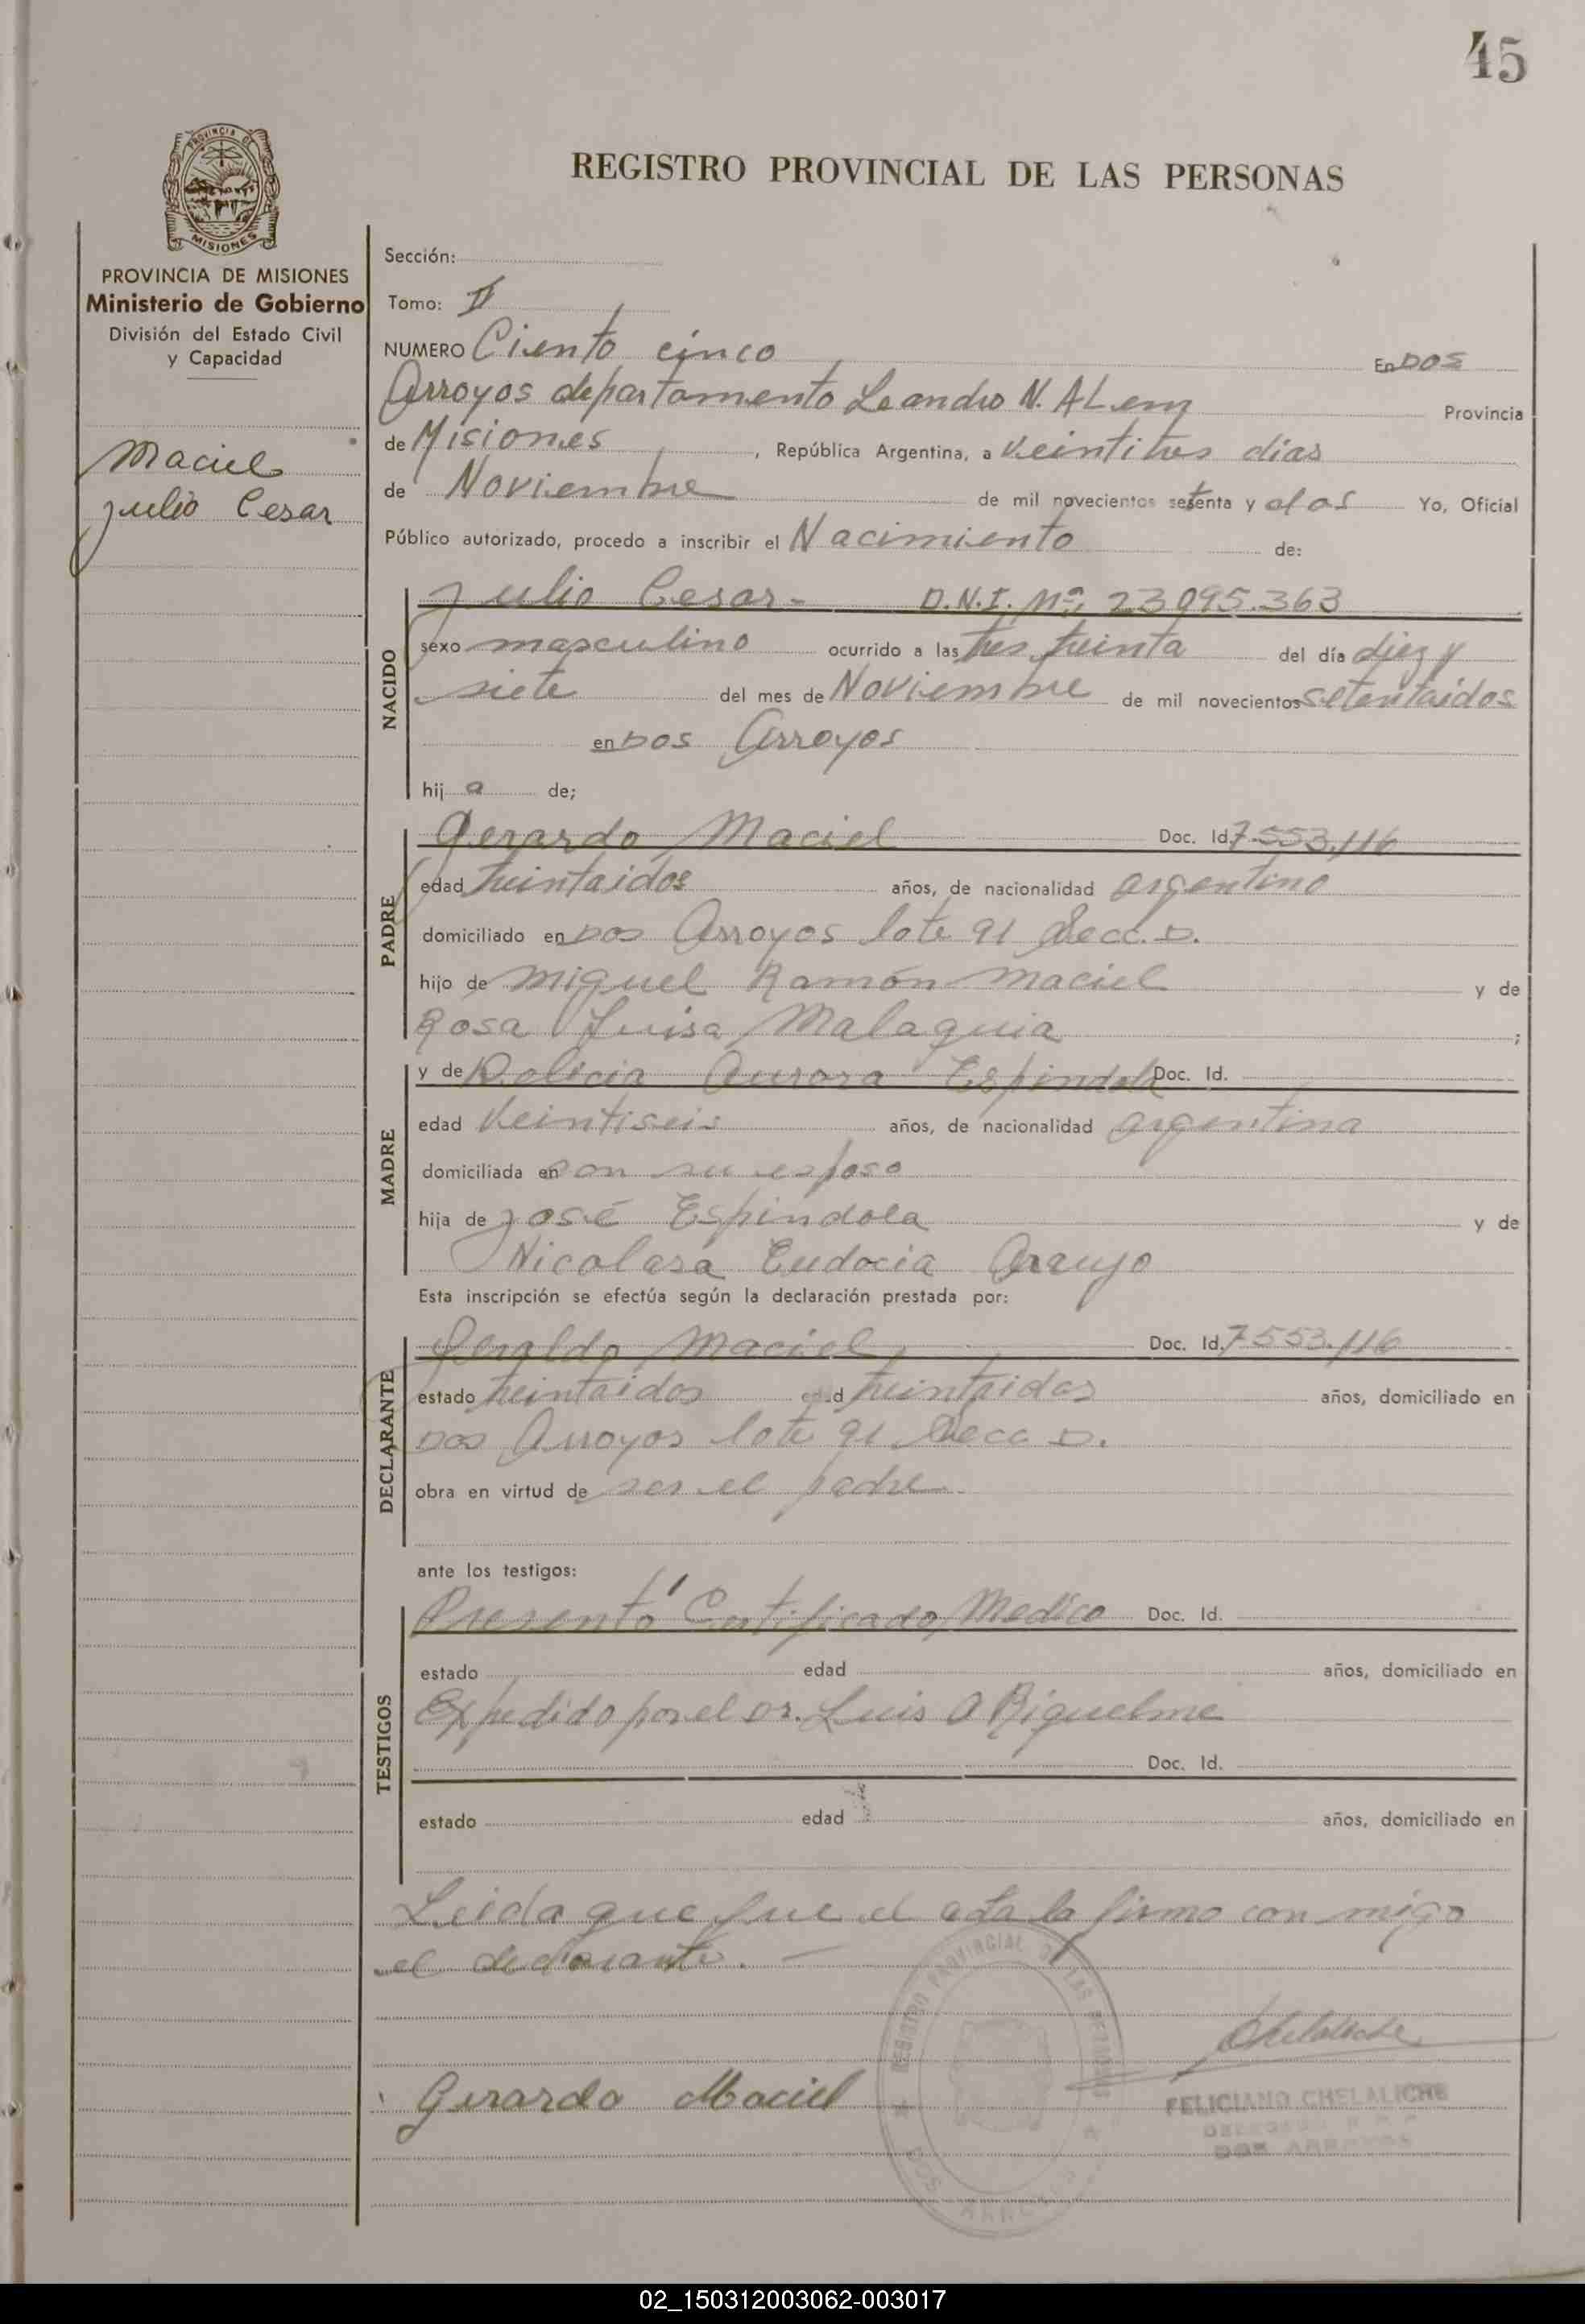 45
PROVINCIA DE MISIONES
REGISTRO PROVINCIAL DE LAS PERSONAS
PROVINCIA DE MISIONES
Ministerio de Gobierno
División del Estado Civil
y Capacidad
Maciel
Julio Cesar
Sección:
Tomo: II
NUMERO Ciento cinco En DOS
Arroyos departamento Leandro N. ALem Provincia
de Misiones, República Argentina, a Veintitres dias
de Noviembre de mil novecientos setenta y dos Yo, Oficial
Público autorizado, procedo a inscribir el Nacimiento de:
NACIDO
Julio Cesar- D.N.I. Nº: 23095.363
sexo masculino ocurrido a las tres treinta del día diez y
siete del mes de Noviembre de mil novecientos setentaidos
en DOS Arroyos
hij a de;
PADRE
Gerardo Maciel Doc. Id. 7.553.116
edad treintaidos años, de nacionalidad argentino
domiciliado en DOS Arroyos lote 91 Secc. D.
hijo de Miguel Ramón Maciel y de
Rosa Luisa Malaquia;
MADRE
y de Delicia Aurora Espindola Doc. Id.
edad Veintiseis años, de nacionalidad argentina
domiciliada en con su esposo
hija de José Espindola y de
Nicolasa Eudocia Araujo
Esta inscripción se efectúa según la declaración prestada por:
DECLARANTE
Geraldo Maciel Doc. Id. 7553.116
estado treintaidos edad treintaidos años, domiciliado en
DOS Arroyos lote 91 Secc D.
obra en virtud de ser el padre
ante los testigos:
TESTIGOS
Presentó Certificado Medico Doc. Id.
estado edad años, domiciliado en
Expedido por el Dr. Luis O Riquelme
Doc. Id.
estado edad años, domiciliado en
Leida que fue el acta la firmo con migo
el declarante. —
REGISTRO PROVINCIAL DE LAS PERSONAS
DOS ARROYOS
Chelaliche
Gerardo Maciel
FELICIANO CHELALICHE
DOS ARROYOS
02_150312003062-003017